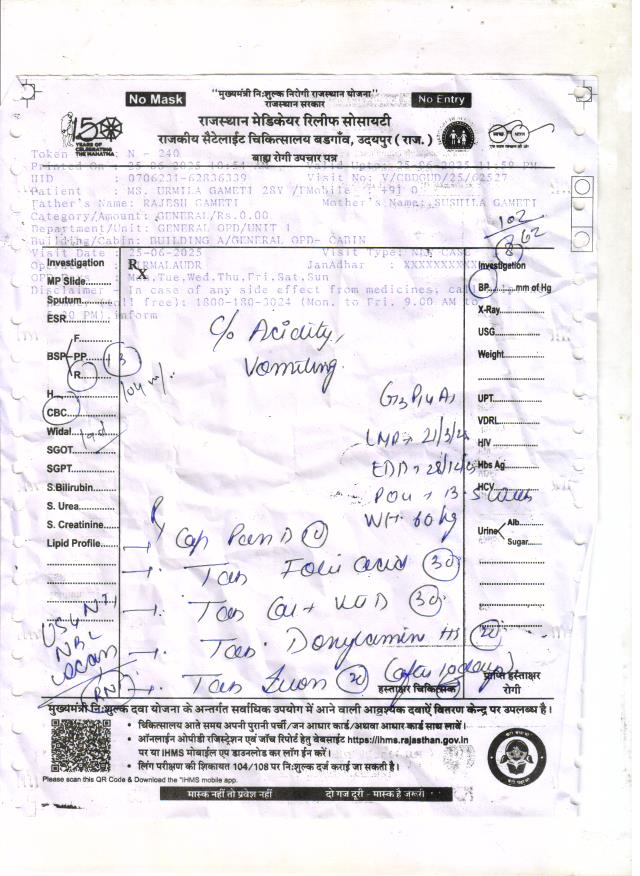 "मुख्यमंत्री निःशुल्क निरोगी राजस्थान योजना"
No Mask
राजस्थान सरकार
No Entry
राजस्थान मेडिकेयर रिलीफ सोसायटी
राजकीय सैटेलाईट चिकित्सालय बडगाँव, उदयपुर ( राज. )
बाह्य रोगी उपचार पत्र
150
YEARS OF
CELEBRATING
THE MAHATMA
Token N - 240
Printed On : 25-06-2025
HID : 0706231-62836339 Visit No: V/CBDGUD/25/62527
Patient : MS. URMILA GAMETI 28Y /F
Father's Name: RAJESH GAMETI Mother's Name: SUSHILA GAMETI
Category/Amount: GENERAL/Rs.0.00
Department/Unit: GENERAL OPD/UNIT 1
Building/Cabin: BUILDING A/GENERAL OPD- CABIN
Visit Date : 25-06-2025 Visit Type: NEW CASE
NIRMALAUDR JanAadhar : XXXXXXXXX
Mon,Tue,Wed,Thu,Fri,Sat,Sun
Disclaimer : In case of any side effect from medicines, call
(toll free): 1800-180-3024 (Mon. to Fri. 9.00 AM to
PM) inform
102
62
Rx
Investigation
MP Slide
Sputum
ESR
BSP F PP R
H
CBC
Widal
SGOT
SGPT
S.Bilirubin
S. Urea
S. Creatinine
Lipid Profile
Investigation
BP mm of Hg
X-Ray
USG
Weight
UPT
VDRL
HIV
Hbs Ag
HCV
Urine Alb. Sugar
C/o Acidity,
Vomiting
LMP → 21/3/25
EDD → 28/12/25
POG → 13.5 weeks
Wt. 60 kg
Cap Pan D 10
Tab Folic acid 30
Tab Cal + Vit D 30
Tab. Doxylamin HS 20
(after 10 days)
हस्ताक्षर चिकित्सक
प्राप्ति हस्ताक्षर
रोगी
मुख्यमंत्री निःशुल्क दवा योजना के अन्तर्गत सर्वाधिक उपयोग में आने वाली आवश्यक दवाऐं वितरण केन्द्र पर उपलब्ध है।
• चिकित्सालय आते समय अपनी पुरानी पर्ची/जन आधार कार्ड/अथवा आधार कार्ड साथ लावें।
• ऑनलाईन ओपीडी रजिस्ट्रेशन एवं जाँच रिपोर्ट हेतु वेबसाईट https://ihms.rajasthan.gov.in
पर या IHMS मोबाईल एप डाउनलोड कर लॉग ईन करें।
• लिंग परीक्षण की शिकायत 104/108 पर निःशुल्क दर्ज कराई जा सकती है।
Please scan this QR Code & Download the "IHMS mobile app.
मास्क नहीं तो प्रवेश नहीं दो गज दूरी - मास्क है जरूरी